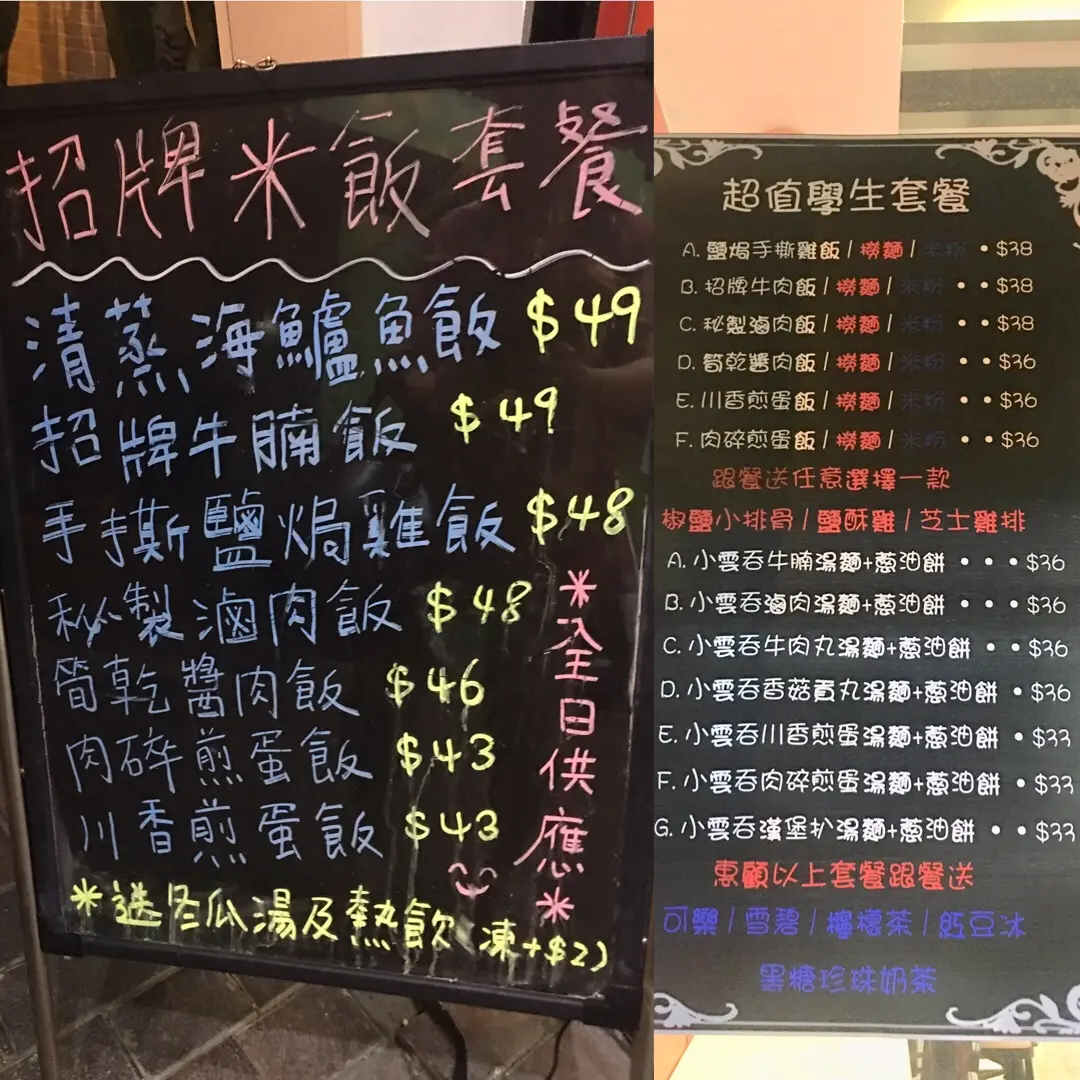 招牌米飯套餐
清蒸海鱸魚飯 $49
招牌牛腩飯 $49
手撕鹽焗雞飯 $48
秘製滷肉飯 $48
筍乾醬肉飯 $46
肉碎煎蛋飯 $43
川香煎蛋飯 $43
*全日供應*
*送冬瓜湯及熱飲(凍+$2)
超值學生套餐
A. 鹽焗手撕雞飯/撈麵/米粉 • $38
B. 招牌牛肉飯/撈麵/米粉 • • $38
C. 秘製滷肉飯/撈麵/米粉 • • $38
D. 筍乾醬肉飯/撈麵/米粉 • • $36
E. 川香煎蛋飯/撈麵/米粉 • • $36
F. 肉碎煎蛋飯/撈麵/米粉 • • $36
跟餐送任意選擇一款
椒鹽小排骨/鹽酥雞/芝士雞排
A. 小雲吞牛腩湯麵+蔥油餅 • • • $36
B. 小雲吞滷肉湯麵+蔥油餅 • • • $36
C. 小雲吞牛肉丸湯麵+蔥油餅 • • $36
D. 小雲吞香菇貢丸湯麵+蔥油餅 • $36
E. 小雲吞川香煎蛋湯麵+蔥油餅 • $33
F. 小雲吞肉碎煎蛋湯麵+蔥油餅 • $33
G. 小雲吞漢堡扒湯麵+蔥油餅 • • $33
惠顧以上套餐跟餐送
可樂/雪碧/檸檬茶/紅豆冰
黑糖珍珠奶茶